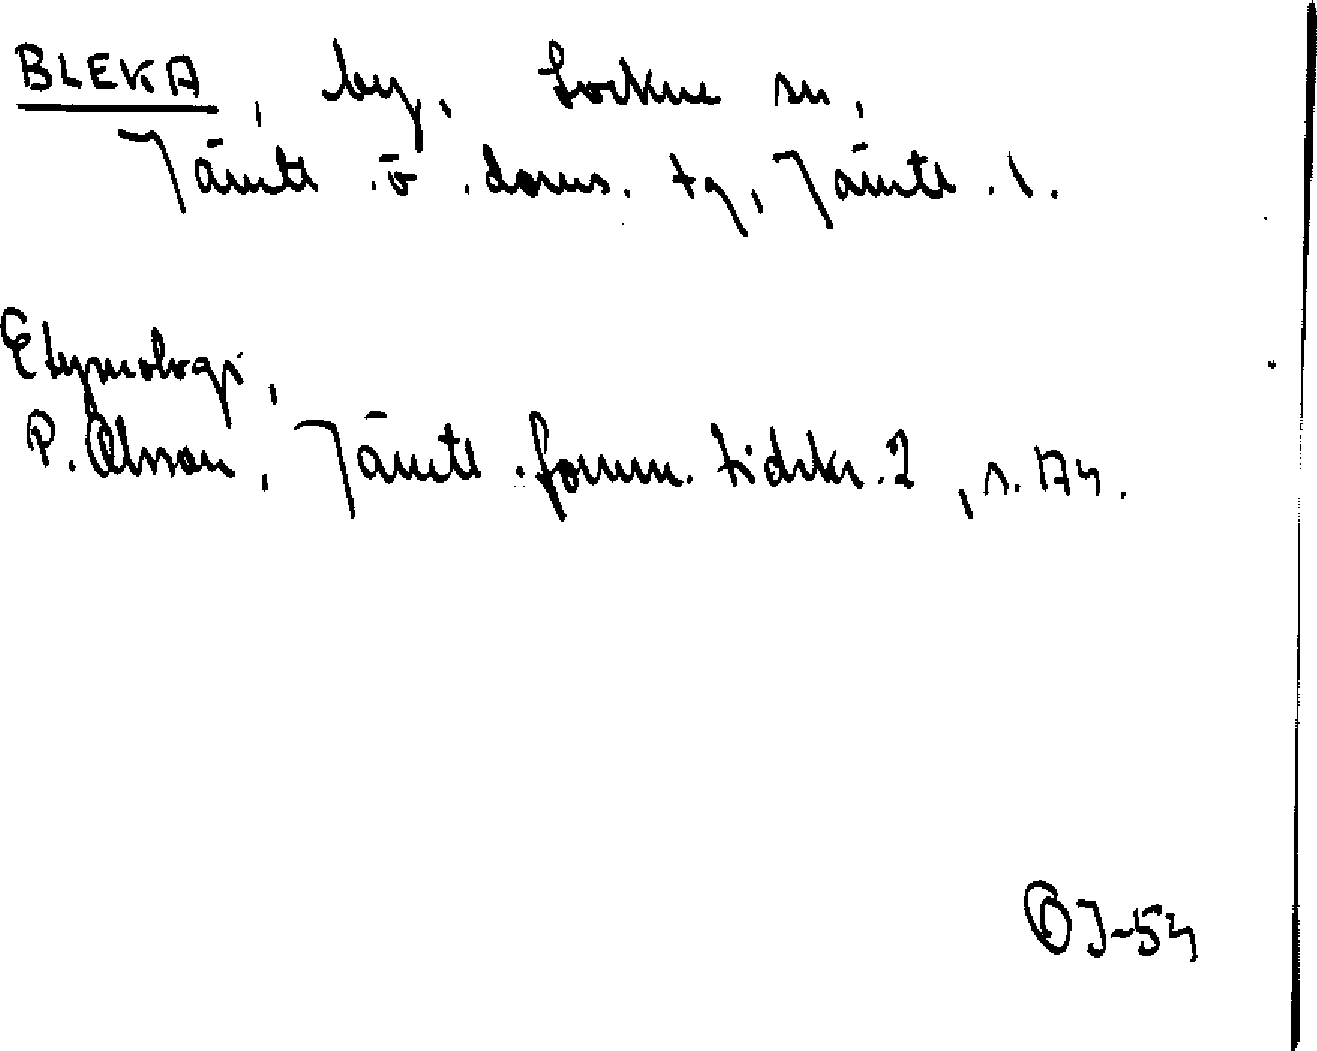 BLEKA, by, Lockne sn,
Jämtl. ö. doms. tg, Jämtl. l.
Etymologi,
P. Olsson, Jämtl. fornm. tidskr. 2, s. 174.
OJ-54